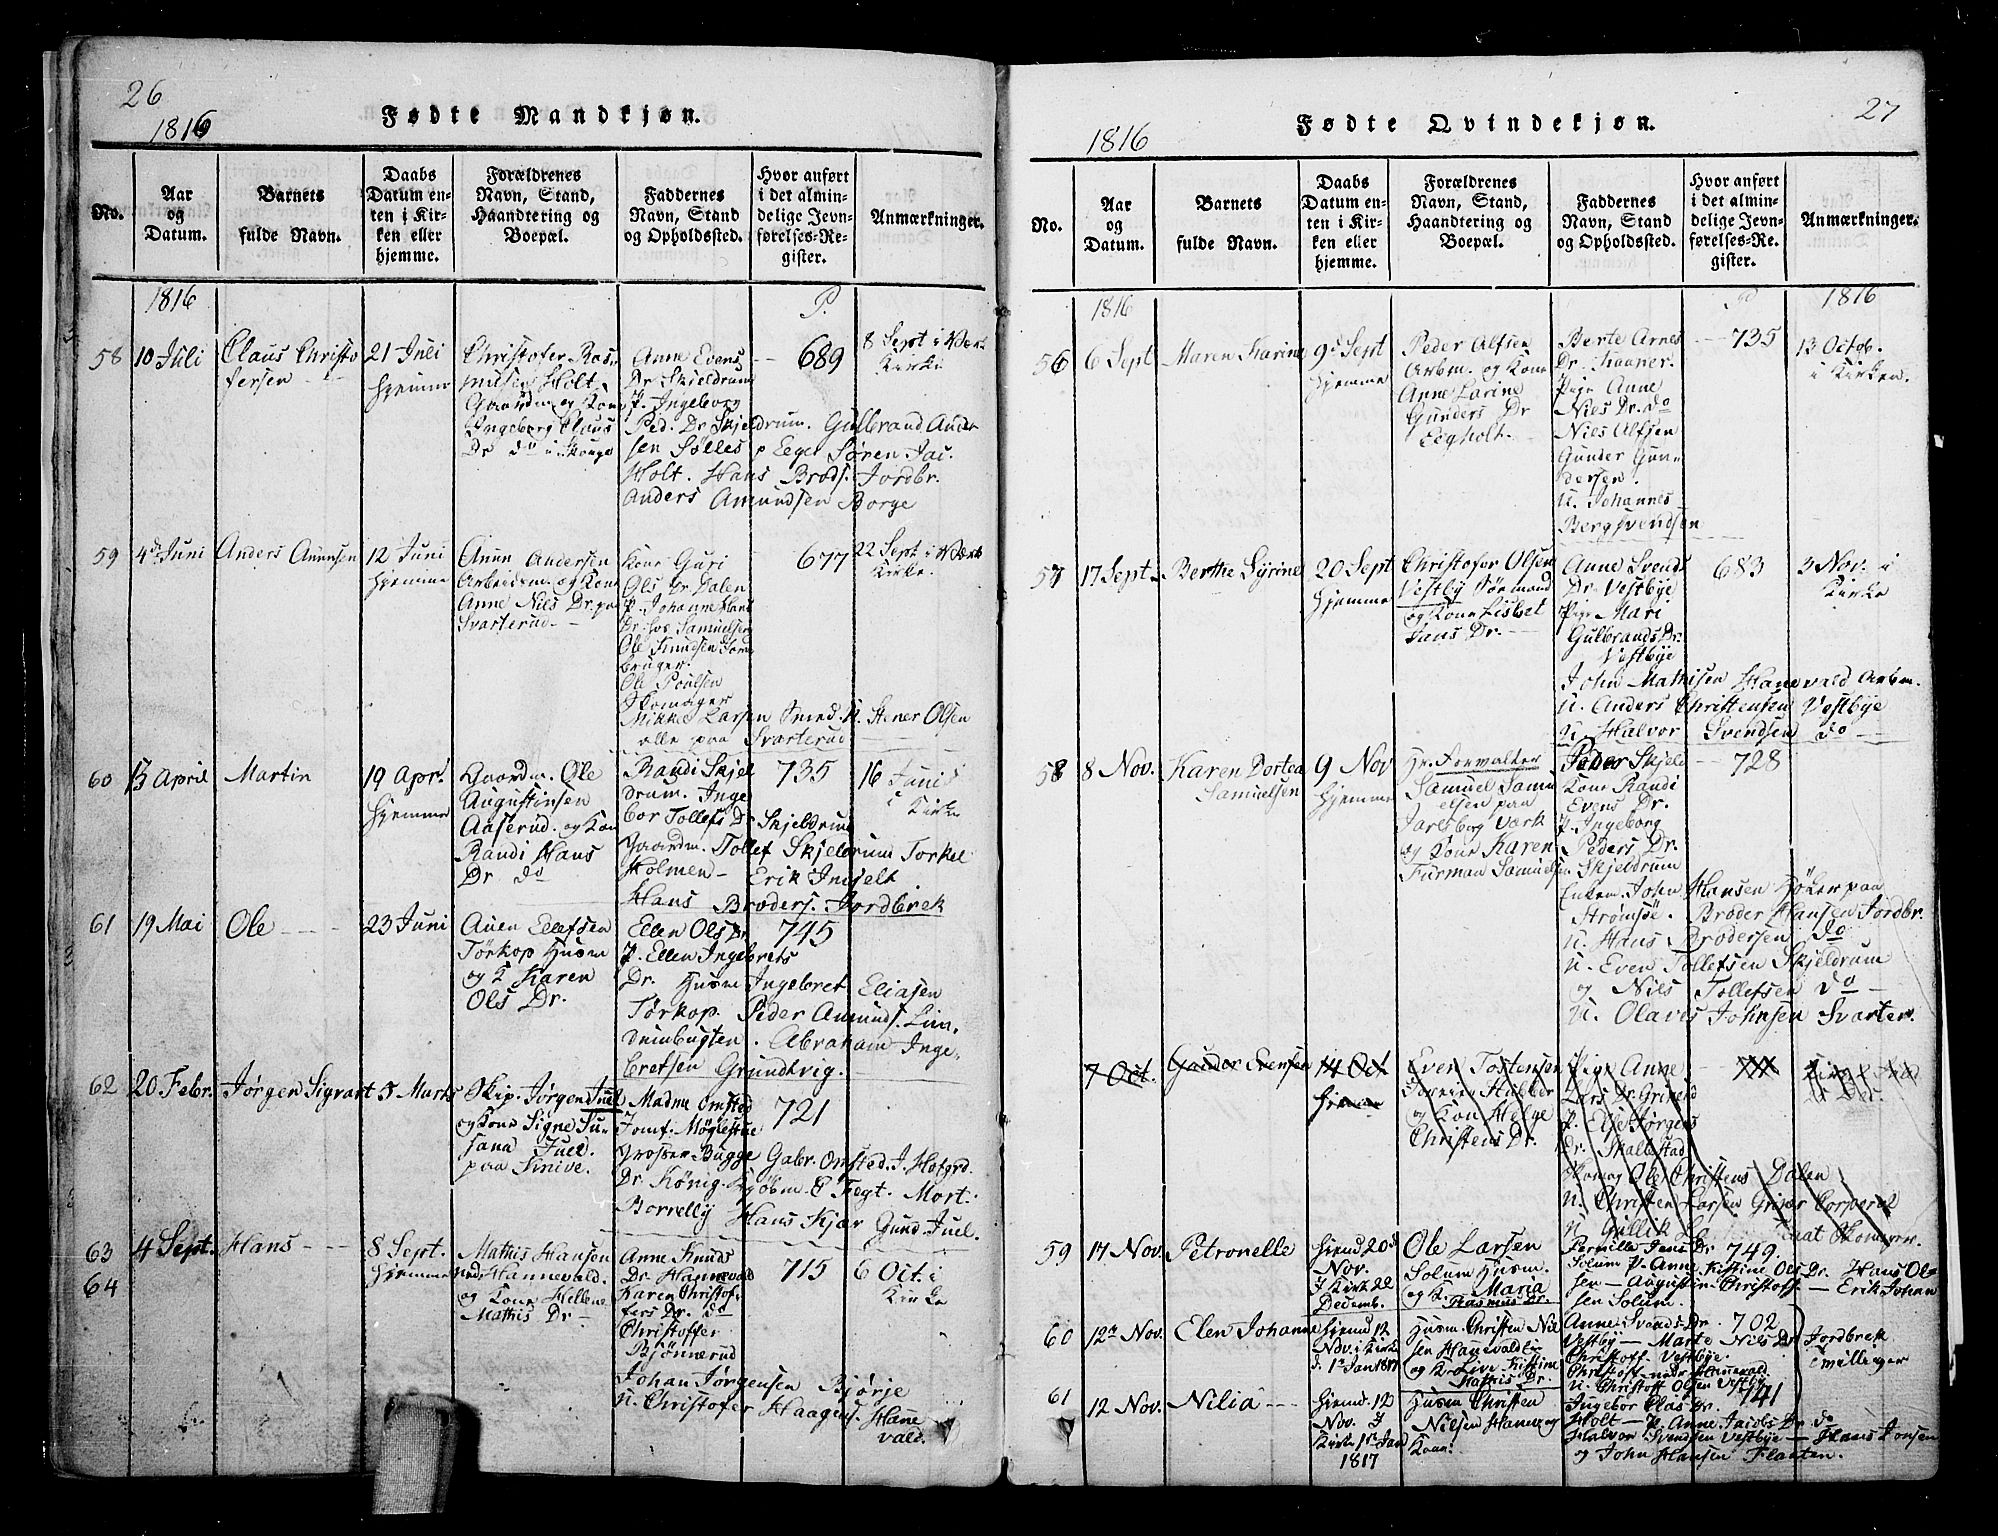 26
1816
Fødte Mandkjøn.
No.
Aar
og
Datum.
Barnets
fulde Navn.
Daabs
Datum en-
ten i Kir-
ken eller
hjemme.
Forældrenes
Navn, Stand,
Haandtering og
Boepæl.
Faddernes
Navn, Stand
og Opholdssted.
Hvor anført
i det almin-
delige Jevn-
førelses-Re-
gister.
Anmærkninger.
1816
P.
58
10 Juli
Claus Christo
fersen
21 Juli
Hjemme
Christofer Ras-
musen Holt.
Gaardm. og Kone
Ingeborg Claus
Dr do i Skouge
Anne Evens
Dr Skjeldrum
P. Ingeborg
Ped. Dr Skjeldrum. Gulbrand Ander
sen Sølles p Eger Søren Jac.
Holt. Hans Brods. Jordbr.
Anders Amundsen Borge
689
8 Sept i Værk
Kirke
59
4de Juni
Anders Anunsen
12 Juni
Hjemme
Anun Andersen
Arbeidsm. og Kone
Anne Nils Dr. paa
Svarterud
Kone Guri
Ols Dr Dalen
P. Johanne Hans
Dr. hos Samuelsen
Ole Knudsen Jor
bruger.
Ole Poulsen
Skomager
Mikkel Larsen Smed. N. Stener Olsen
alle paa Svarterud
677
22 Sept i Værk
Kirke.
60
15 April
Martin
19 Apr.
Hjemme
Gaardm. Ole
Augustinsen
Aaserud. og Kone
Randi Hans
Dr do
Randi Skjel
drum. Inge
bor Tollefs Dr Skjeldrum
Gaardm. Tollef Skjeldrum Torkel
Holmen - Erik Ingelt
Hans Broders. Jordbrek
735
16 Juni
i
Kirke
61
19 Mai
Ole
23 Juni
Auen Ellefsen
Tørkop Husm
og K Karen
Ols Dr.
Ellen Ols Dr
P. Ellen Ingebrets
Dr. Husm Ingebret Eliasen
Tørkop. Peder Amunds. Lin-
drumbugten. Abraham Inge-
bretsen Grundtvig.
745
62
20 Febr.
Jørgen Sigvart
5 Marts
Skip. Jørgen Juel
og Kone Signe Su-
sana Juel.
paa Knive.
Madme Omsted
Jomf. Møglestue
Grosser Bugge Gabr. Omsted. J. Hofgrd.
Dr. Kønig. Kjøbm. E Tegt. Mort.
Borrelly Hans Kjær Gund. Juel.
721
63
64
4 Sept.
Hans
8 Sept.
Hjemme
Mathis Hansen
Hannevald.
og Kone Hellene
Mathis Dr
Anne Knuds
Dr. Hannevald
Karen Christof-
fers Dr. do
Christoffer
Bjønnerud
Johan Jørgensen Bjørje
N. Christofer Haagens. Hane
vald.
715
6 Oct. i
Kirke
27
1816
Fødte Qvindekjøn.
No.
Aar
og
Datum.
Barnets
fulde Navn.
Daabs
Datum en-
ten i Kir-
ken eller
hjemme.
Forældrenes
Navn, Stand,
Haandtering og
Boepæl.
Faddernes
Navn, Stand
og Opholdssted.
Hvor anført
i det almin-
delige Jevn-
førelses-Re-
gister.
Anmærkninger.
1816
1816
56
6 Sept
Maren Karine
9de Sept
Hjemme
Peder Alfsen
Arbm. og Kone
Anne Larine
Gunders Dr
Eegholt.
Berte Arnes
Dr. Kaaner.
Pige Anne
Niels Dr. do
Niels Alfsen
Gunder Gun-
dersen.
U. Johannes
Bergsvendsen
735
13 Octob.
i Kirken.
57
17 Sept.
Berthe Syrine
20 Sept
Hjemme
Christofor Olsen
Vestby Sørmand
og Kone Lisbet
Jans Dr.
Anne Svends
Dr. Vestbye
Pige Mari
Gulbrands Dr
Vestbye
John Mathisen Hanevald Arbm.
U. Anders Christensen Vestbye
U. Halvor Svendsen do
683
3 Nov. i
Kirke
58
8 Nov.
Karen Dortea
Samuelsen
9 Nov
Hjemme
Hr. Forvalter
Samuel Samu
elsen paa
Jarlsberg Værk
og Kone Karen
Furman Samuelsen
Peder Skjeld
Kone Randi
Evens Dr.
P. Ingeborg
Peders Dr.
Skjeldrum
Enkem. John Hansen Høker paa
Strømsøe. Broder Hansen Jordbr.
U. Hans Brodersen do
U. Even Tollefsen Skjeldrum
og Nils Tollefsen do
U. Olaves Johnsen Svarter.
728
7 Oct.
Gunder Evensen
14 Oct
Hjemme
Even Tostensen
og Kone Helge
Christens Dr.
Pige Anne
Lars Dr. Grinerid
P. Else Jørgens
Dr. Skallestad
Skomag Ole Christens Dalen
U. Christen Larsen Corporal
U. Gullik
59
17 Nov.
Petronelle
Hiemd 20de
Nov.
I Kirk 22
Decemb.
Ole Larsen
Solum Husm.
og K. Maria
Rasmus Dr.
Pernille Jens Dr
Solum P. Anne Kistine Ols Dr. Hans Ol-
sen - Augustin Christoff - Erik Johan
sen Solum.
749.
60
12te Nov.
Elen Johanne
Hiemd 12
Nov. i Kirke
d. 1ste Jan 1817
Husm Christen Nil
sen Hanevald
og K. Live Kistine
Mathis Dr.
Anne Svends Dr.
Vestby - Marte Nils Dr
Christoff. Vestbye.
Christof. Hanevald
U. Christoff Olsen Vestby
702
Jordbrek
Tvillinger
61
12 Nov.
Nilia
Hiemd. 12
Nov. I
Kirke 1ste Jan
1817
Husm Christen
Nilsen Hanev. og
Kone.
Ingebor Clas Dr.
Holt - P. Anne Jacobs Dr. do
Halvor Svendsen Vestbye - Hans Jonsen
og John Hansen Flaaten.
741